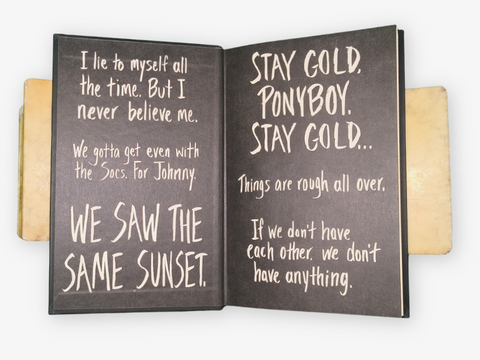 I lie to myself all
the time. But I
never believe me.
We gotta get even with
the Socs. For Johnny.
WE SAW THE
SAME SUNSET.
STAY GOLD,
PONYBOY.
STAY GOLD...
Things are rough all over.
If we don't have
each other, we don't
have anything.